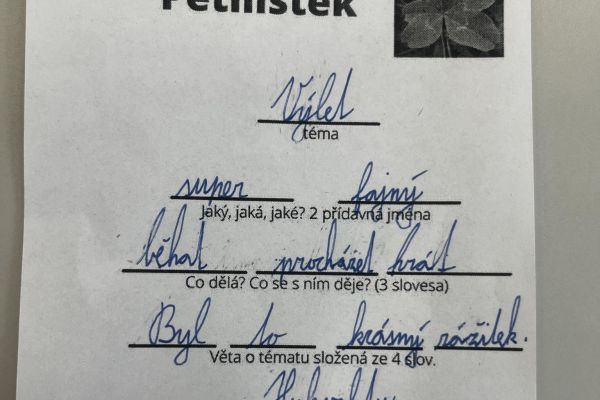 Pětilístek
Výlet
téma
super fajný
Jaký, jaká, jaké? 2 přídavná jména
běhat procházet hrát
Co dělá? Co se s ním děje? (3 slovesa)
Byl to krásný zážitek.
Věta o tématu složená ze 4 slov.